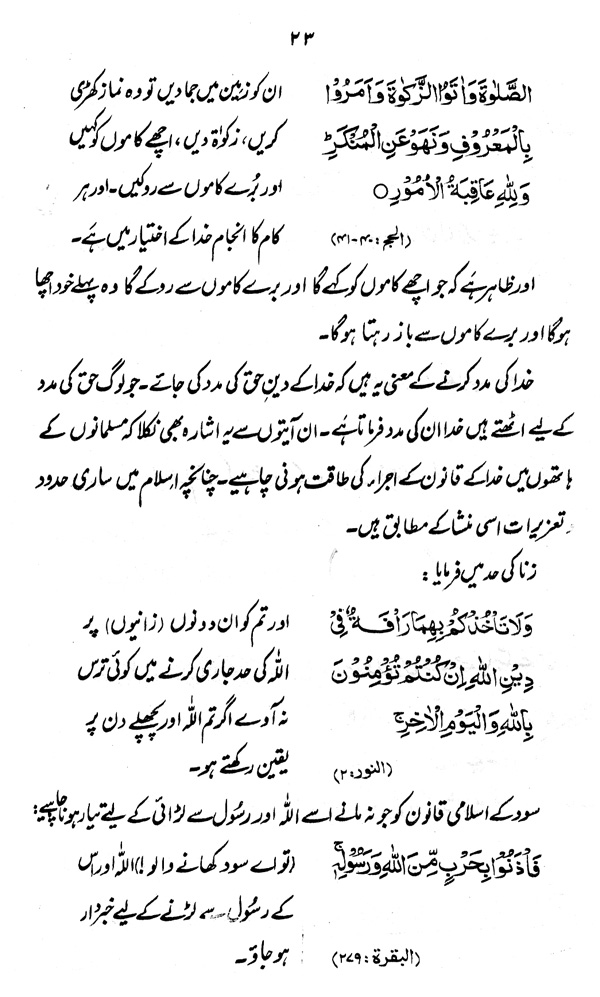 ۲۳
الصَّلٰوةَ وَاٰتَوُا الزَّكٰوةَ وَاَمَرُوْا
بِالْمَعْرُوْفِ وَنَهَوْا عَنِ الْمُنْكَرِ ؕ
وَلِلّٰهِ عَاقِبَةُ الْاُمُوْرِ ○
(الحج : ۴۰-۴۱)
ان کو زمین میں جما دیں تو وہ نماز کھڑی
کریں، زکوٰۃ دیں، اچھے کاموں کو کہیں
اور بُرے کاموں سے روکیں۔ اور ہر
کام کا انجام خدا کے اختیار میں ہے۔
اور ظاہر ہے کہ جو اچھے کاموں کو کہے گا اور برے کاموں سے روکے گا وہ پہلے خود اچھا
ہوگا اور برے کاموں سے باز رہتا ہوگا۔
خدا کی مدد کرنے کے معنی یہ ہیں کہ خدا کے دینِ حق کی مدد کی جائے۔ جو لوگ حق کی مدد
کے لیے اٹھتے ہیں خدا ان کی مدد فرماتا ہے۔ ان آیتوں سے یہ اشارہ بھی نکلا کہ مسلمانوں کے
ہاتھوں میں خدا کے قانون کے اجراء کی طاقت ہونی چاہیے۔ چنانچہ اسلام میں ساری حدود
تعزیرات اسی منشا کے مطابق ہیں۔
زنا کی حد میں فرمایا :
وَلَا تَاْخُذْكُمْ بِهِمَا رَاْفَةٌ فِیْ
دِیْنِ اللّٰهِ اِنْ كُنْتُمْ تُؤْمِنُوْنَ
بِاللّٰهِ وَالْیَوْمِ الْاٰخِرِ ۚ
(النور : ۲)
اور تم کو ان دونوں (زانیوں) پر
اللہ کی حد جاری کرنے میں کوئی ترس
نہ آوے اگر تم اللہ اور پچھلے دن پر
یقین رکھتے ہو۔
سود کے اسلامی قانون کو جو نہ مانے اسے اللہ اور رسُول سے لڑائی کے لیے تیار ہونا چاہیے :
فَاْذَنُوْا بِحَرْبٍ مِّنَ اللّٰهِ وَرَسُوْلِهٖ ۚ
(البقرة : ۲۷۹)
(تو اے سود کھانے والو!) اللہ اور اس
کے رسُول سے لڑنے کے لیے خبردار
ہو جاؤ۔